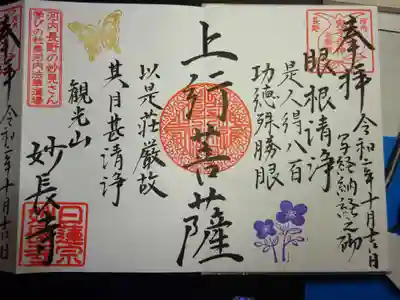 奉拝
令和二年十月吉日
写経納経之砌
眼根清浄
是人得八百
功徳殊勝眼
上行菩薩
以是荘厳故
其目甚清浄
観光山
妙長寺
日蓮宗
河内長野の妙見さん
奉拝
令和二年十月吉日